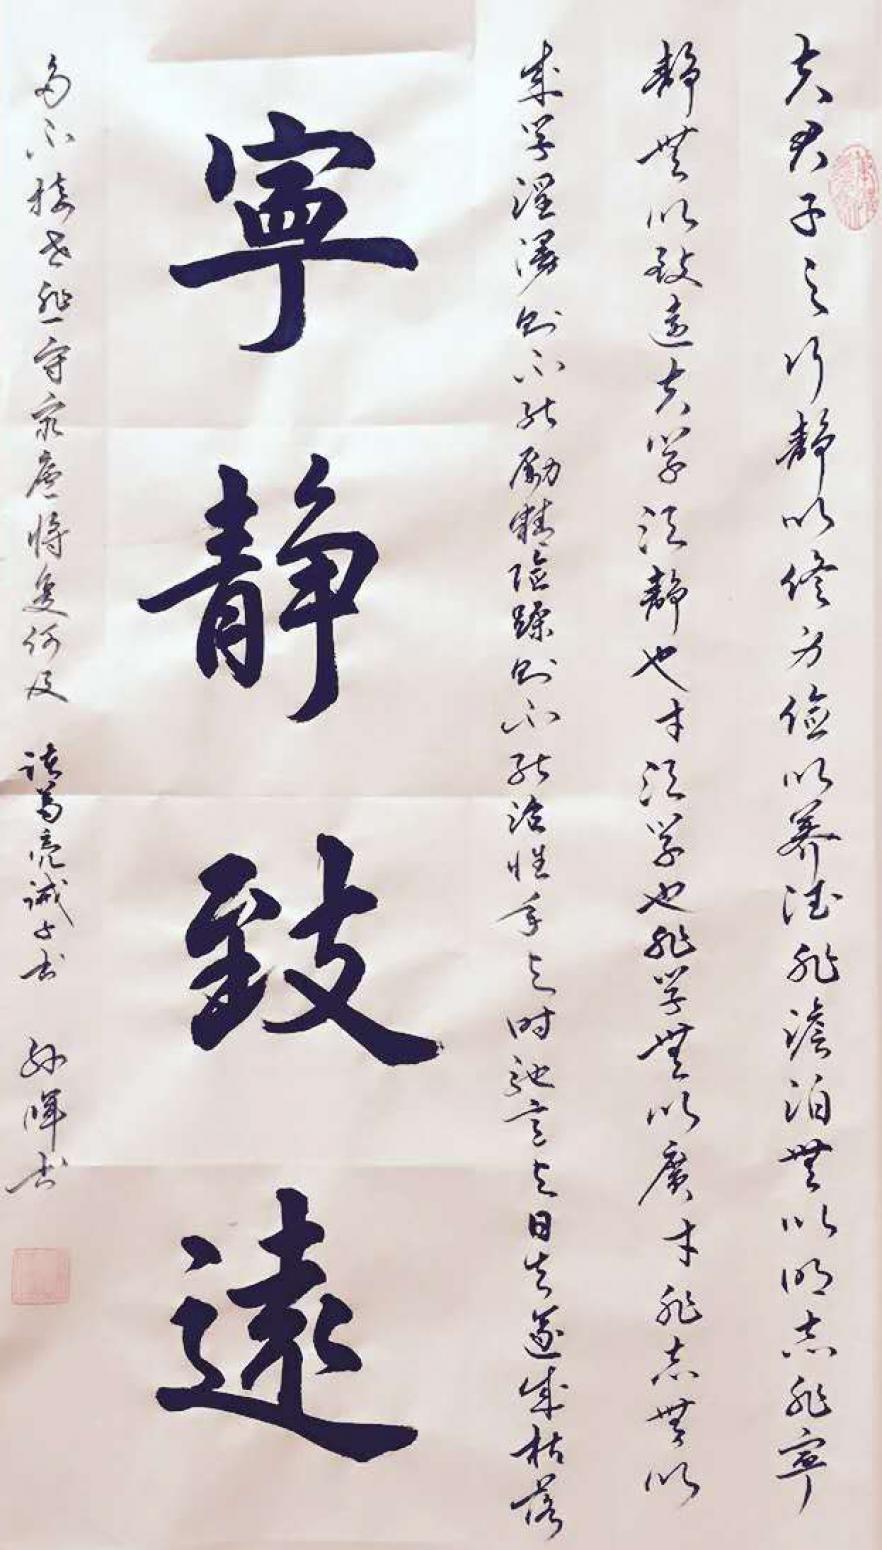 夫君子之行靜以修身儉以養德非澹泊無以明志非寧
靜無以致遠夫學須靜也才須學也非學無以廣才非志無以
成學淫漫則不能勵精險躁則不能治性年與時馳意與日去遂成枯落
寧靜致遠
多不接世悲守窮廬將復何及 諸葛亮誡子書 孫暉書